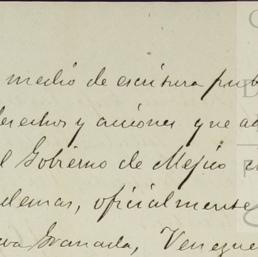 medio de escritura pub
derechos y acciones que a
el Gobierno de Mejico
demas, oficialmente
va Granada, Venezue